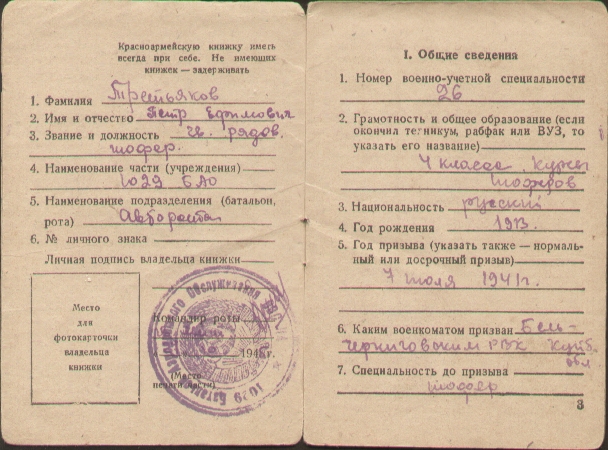 Красноармейскую книжку иметь
всегда при себе. Не имеющих
книжек — задерживать
1. Фамилия Третьяков
2. Имя и отчество Петр Ефимович
3. Звание и должность гв. рядов.
шофер.
4. Наименование части (учреждения)
1029 БАО
5. Наименование подразделения (батальон,
рота) Авторота
6. № личного знака
Личная подпись владельца книжки
Место
для
фотокарточки
владельца
книжки
Командир роты
194 г.
(Место
печати части)
Обслуживания
1029 Батальон
I. Общие сведения
1. Номер военно-учетной специальности
26
2. Грамотность и общее образование (если
окончил техникум, рабфак или ВУЗ, то
указать его название)
4 класса курсы
шоферов
3. Национальность русский
4. Год рождения 1913.
5. Год призыва (указать также — нормаль-
ный или досрочный призыв)
7 июля 1941г.
6. Каким военкоматом призван
черниговским РВК Куйб.
обл
7. Специальность до призыва
шофер
3